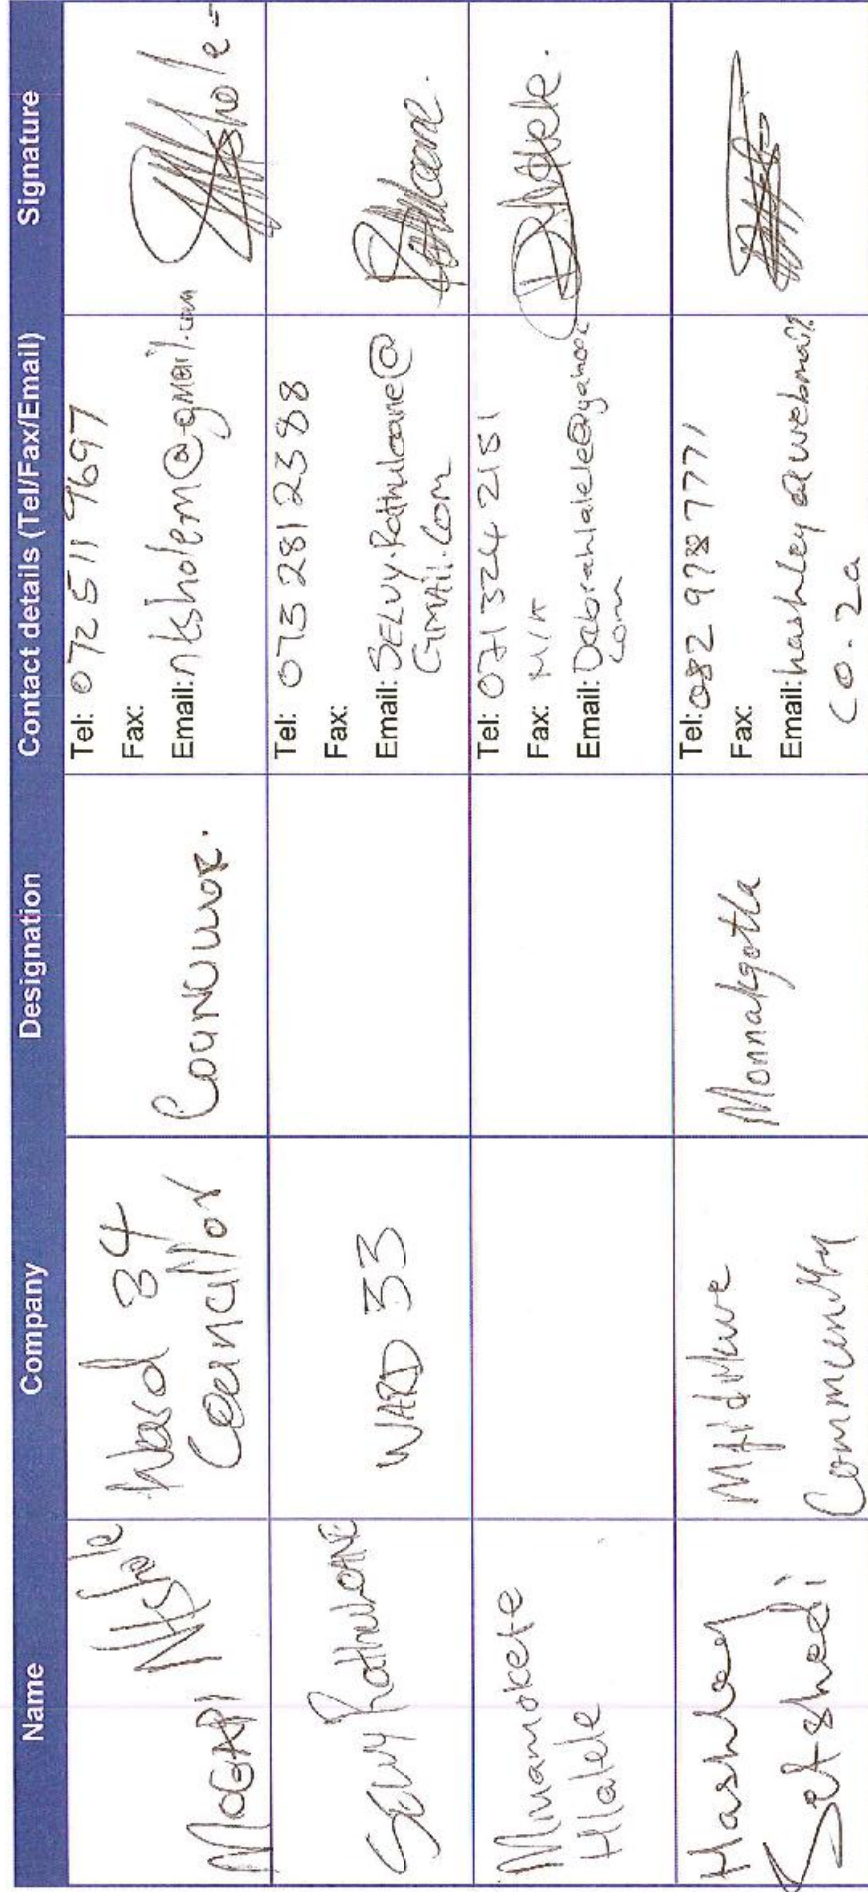 Name Company Designation Contact details (Tel/Fax/Email) Signature
MOGAPI Nkshole
Ward 34
Councillor
COUNCILLOR.
Tel: 072 511 9697
Fax:
Email: nksholem@gmail.com
SELVY Rathuloane
WARD 33
Tel: 073 281 2388
Fax:
Email: SELVY.Rathuloane@
GMAIL.COM
Hlalele
Tel: 071 324 2151
Fax: N/A
Email:
com
Hashley
Setshedi
Community
Monnakgotla
Tel: 082 978 7771
Fax:
Email: hashley@webmail
co.za